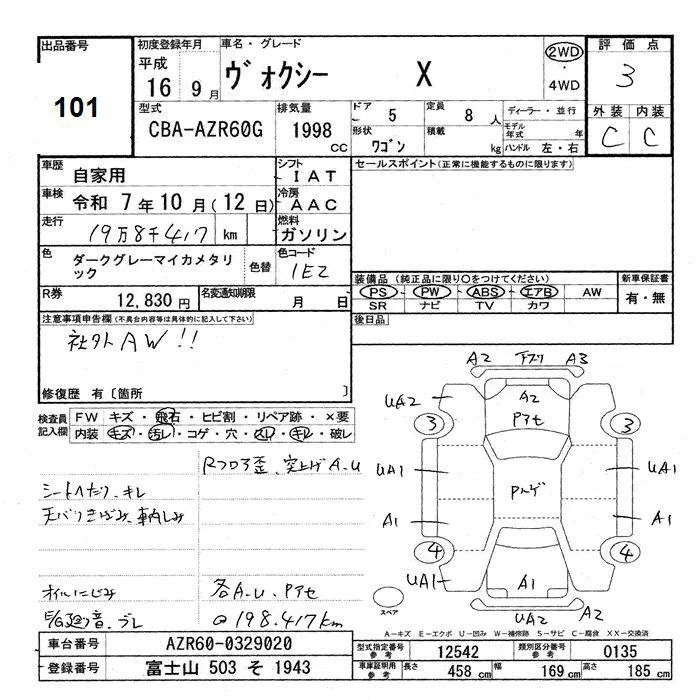 出品番号
101
初度登録年月
平成
16 9月
車名・グレード
ヴォクシー X
2WD
・
4WD
評価点
3
外装 内装
C C
型式
CBA-AZR60G
排気量
1998 CC
ドア 5
定員 8 人
形状 ワゴン
積載 kg
ディーラー・並行
モデル年式 年
ハンドル 左・右
車歴
自家用
シフト
IAT
車検
令和 7年10月(12日)
冷房
AAC
走行
19万8千417 km
燃料
ガソリン
色
ダークグレーマイカメタリック
色替
色コード
1E2
R券
12,830円
名変通知期限
月 日
セールスポイント(正常に機能するものに限ります)
装備品(純正品に限り○をつけてください)
PS・PW・ABS・エアB・AW
SR ナビ TV カワ
新車保証書
有・無
後日品
注意事項申告欄(不具合内容等は具体的に記入して下さい)
社外AW!!
修復歴 有〔箇所 〕
検査員記入欄
FW キズ・飛石・ヒビ割・リペア跡・×要
内装 キズ・汚レ・コゲ・穴・スレ・キレ・破レ
Rフロア歪、突上ゲA.U
シートヘたり、キレ
天バリきばみ、車内しみ
オイルにじみ
各A.U、Pアセ
E/G廻り音、ブレ
@198.417km
A2 下スリ A3
UA2
A2
Pアセ
3 3
UA1
Pハゲ
UA1
A1
A1
4 4
UA1
A1
UA2
A2
スペア
A―キズ E―エクボ U―凹み W―補修跡 S―サビ C―腐食 XX―交換済
車台番号
AZR60-0329020
登録番号
富士山 503 そ 1943
型式指定番号
参考
12542
類別区分番号
参考
0135
車庫証明用
参考
長さ 458 cm
幅 169 cm
高さ 185 cm